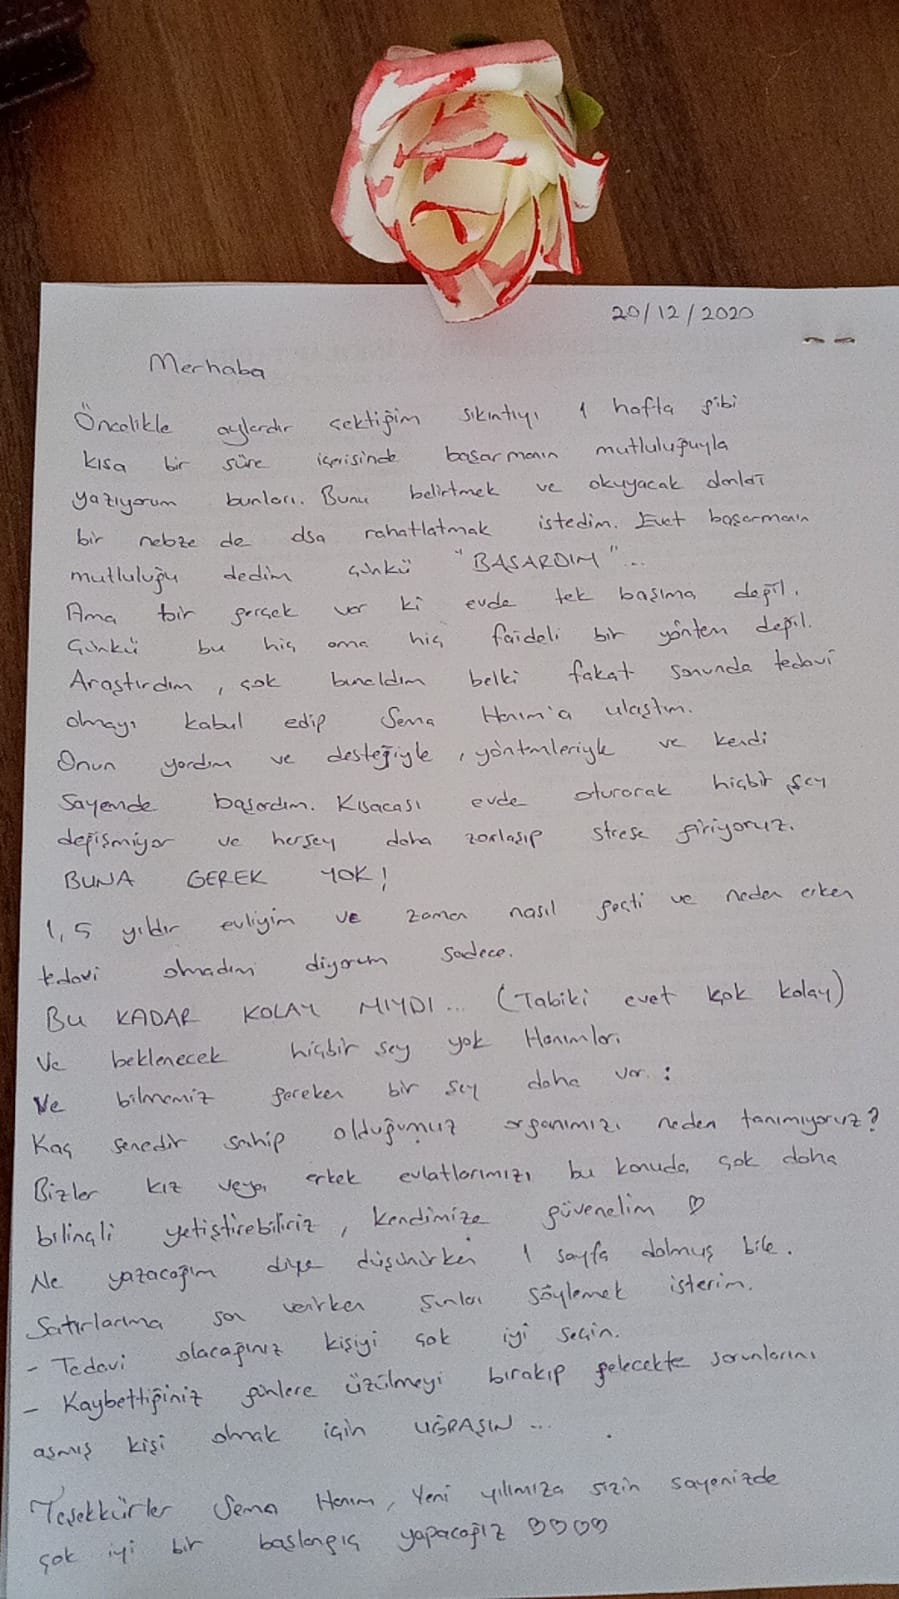 20/12/2020
Merhaba
Öncelikle aylardır çektiğim sıkıntıyı 1 hafta gibi
kısa bir süre içerisinde başarmanın mutluluğuyla
yazıyorum bunları. Bunu belirtmek ve okuyacak olanları
bir nebze de olsa rahatlatmak istedim. Evet başarmanın
mutluluğu dedim çünkü "BAŞARDIM"...
Ama bir gerçek var ki evde tek başıma değil.
Çünkü bu hiç ama hiç faideli bir yöntem değil.
Araştırdım, çok bunaldım belki fakat sonunda tedavi
olmayı kabul edip Sema Hanım'a ulaştım.
Onun yardım ve desteğiyle, yöntemleriyle ve kendi
sayemde başardım. Kısacası evde oturarak hiçbir şey
değişmiyor ve herşey daha zorlaşıp strese giriyoruz.
BUNA GEREK YOK!
1,5 yıldır evliyim ve zaman nasıl geçti ve neden erken
tedavi olmadım diyorum sadece.
BU KADAR KOLAY MIYDI... (Tabiki evet çok kolay)
Ve beklenecek hiçbir şey yok Hanımlar.
Ve bilmemiz gereken bir şey daha var:
Kaç senedir sahip olduğumuz organımızı neden tanımıyoruz?
Bizler kız veya erkek evlatlarımızı bu konuda çok daha
bilinçli yetiştirebiliriz, kendimize güvenelim ♡
Ne yazacağım diye düşünürken 1 sayfa dolmuş bile.
Satırlarıma son verirken şunları söylemek isterim.
- Tedavi olacağınız kişiyi çok iyi seçin.
- Kaybettiğiniz günlere üzülmeyi bırakıp gelecekte sorunlarını
aşmış kişi olmak için UĞRAŞIN...
Teşekkürler Sema Hanım, Yeni yılımıza sizin sayenizde
çok iyi bir başlangıç yapacağız ♡♡♡♡